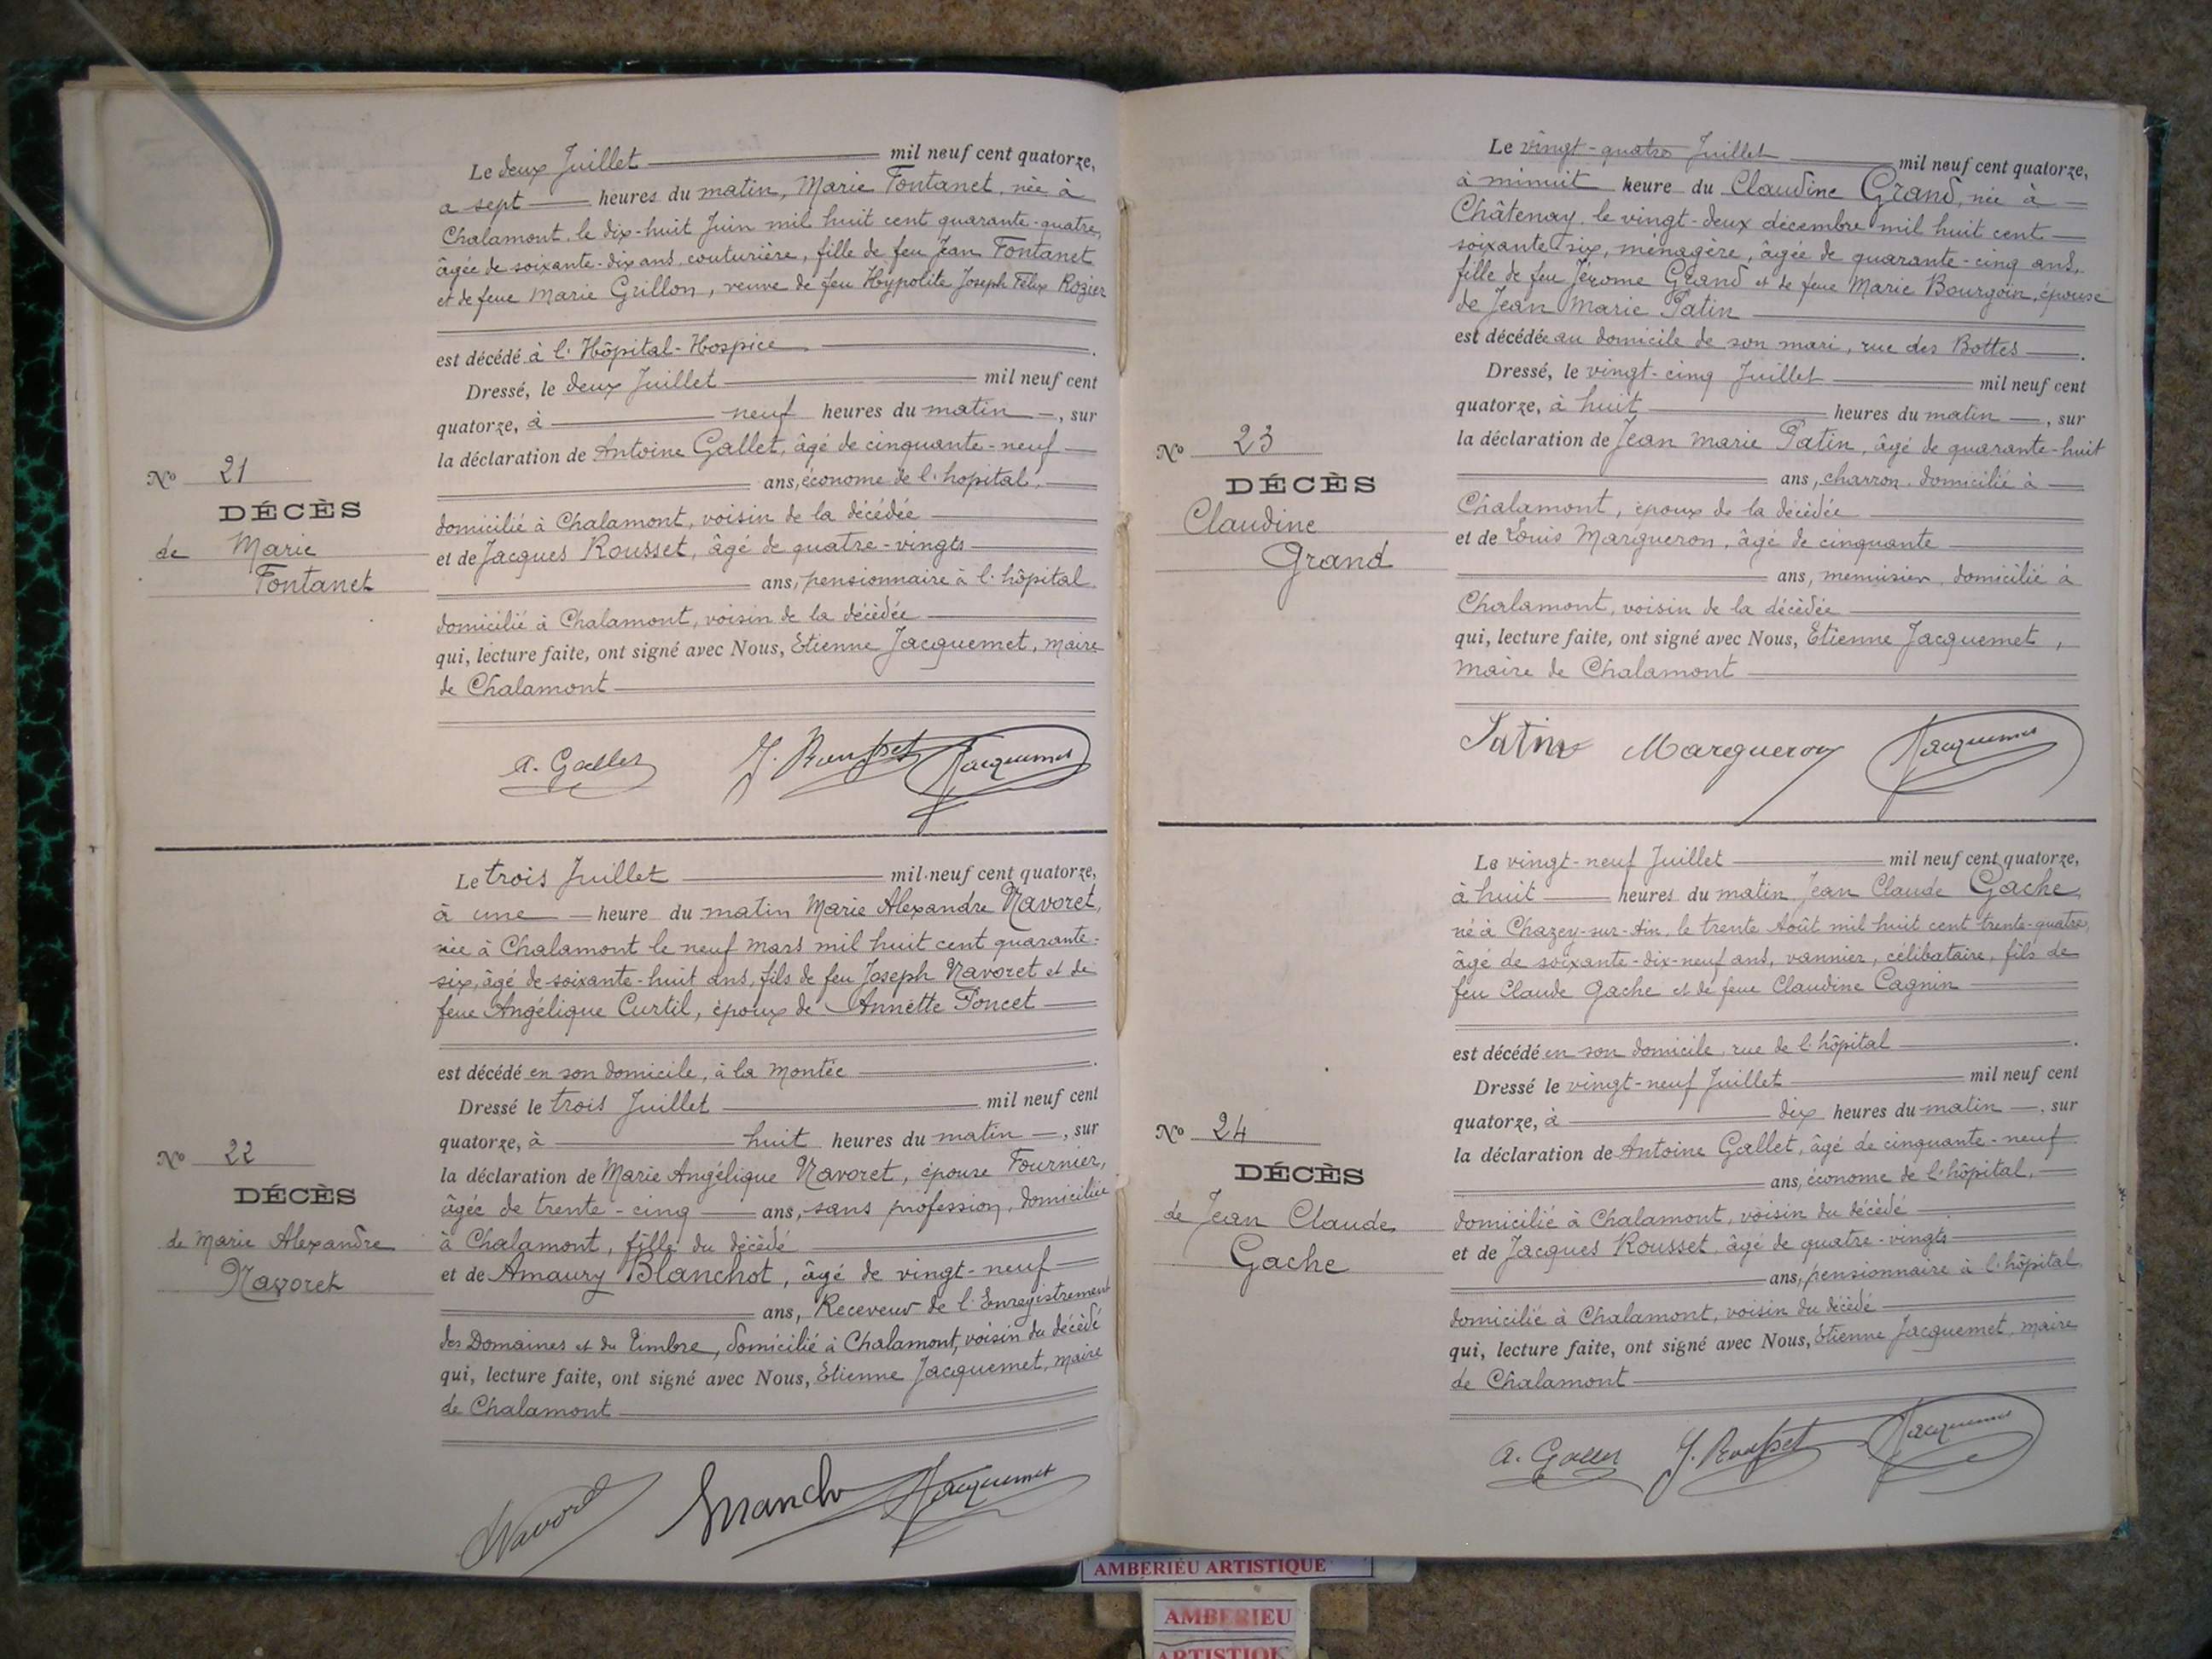 Le deux Juillet mil neuf cent quatorze,
a sept heures du matin, Marie Fontanet, née à
Chalamont, le dix-huit Juin mil huit cent quarante-quatre,
âgée de soixante-dix ans, couturière, fille de feu Jean Fontanet
et de feue Marie Grillon, veuve de feu Hypolite Joseph Félix Rozier
est décédé à l'Hôpital-Hospice.
Dressé, le deux Juillet mil neuf cent
quatorze, à neuf heures du matin, sur
la déclaration de Antoine Gallet, âgé de cinquante-neuf
No 21
ans, économe de l'hopital,
DÉCÈS
domicilié à Chalamont, voisin de la décédée
de Marie
et de Jacques Rousset, âgé de quatre-vingts
Fontanet
ans, pensionnaire à l'hôpital
domicilié à Chalamont, voisin de la décédée
qui, lecture faite, ont signé avec Nous, Etienne Jacquemet, maire
de Chalamont
A. Gallet J. Rousset Jacquemet
Le trois Juillet mil neuf cent quatorze,
à une heure du matin Marie Alexandre Navoret,
née à Chalamont le neuf mars mil huit cent quarante-
six, âgé de soixante-huit ans, fils de feu Joseph Navoret et de
feue Angélique Curtil, époux de Annette Poncet
est décédé en son domicile, à la Montée.
Dressé le trois Juillet mil neuf cent
quatorze, à huit heures du matin, sur
No 22
la déclaration de Marie Angélique Navoret, épouse Fournier,
DÉCÈS
âgée de trente-cinq ans, sans profession, domiciliée
de Marie Alexandre
à Chalamont, fille du décédé
Navoret
et de Amaury Blanchot, âgé de vingt-neuf
ans, Receveur de l'Enregistrement
des Domaines et du Timbre, domicilié à Chalamont, voisin du décédé
qui, lecture faite, ont signé avec Nous, Etienne Jacquemet, maire
de Chalamont
Navoret Jacquemet
Le vingt-quatre Juillet mil neuf cent quatorze,
à minuit heure du Claudine Grand, née à
Châtenay, le vingt-deux décembre mil huit cent
soixante six, ménagère, âgée de quarante-cinq ans,
fille de feu Jérome Grand et de feue Marie Bourgoin, épouse
de Jean Marie Patin
est décédée au domicile de son mari, rue des Bottes.
Dressé, le vingt-cinq Juillet mil neuf cent
quatorze, à huit heures du matin, sur
No 23
la déclaration de Jean Marie Patin, âgé de quarante-huit
DÉCÈS
ans, charron, domicilié à
Claudine
Chalamont, époux de la décédée
Grand
et de Louis Margueron, âgé de cinquante
ans, menuisier, domicilié à
Chalamont, voisin de la décédée
qui, lecture faite, ont signé avec Nous, Etienne Jacquemet,
Maire de Chalamont
Patin Margueron Jacquemet
Le vingt-neuf Juillet mil neuf cent quatorze,
à huit heures du matin Jean Claude Gache,
né à Chazey-sur-Ain, le trente Août mil huit cent trente-quatre,
âgé de soixante-dix-neuf ans, vannier, célibataire, fils de
feu Claude Gache et de feue Claudine Cagnin
est décédé en son domicile, rue de l'hôpital.
Dressé le vingt-neuf Juillet mil neuf cent
quatorze, à dix heures du matin, sur
No 24
la déclaration de Antoine Gallet, âgé de cinquante-neuf
DÉCÈS
ans, économe de l'hôpital,
de Jean Claude
domicilié à Chalamont, voisin du décédé
Gache
et de Jacques Rousset, âgé de quatre-vingts
ans, pensionnaire à l'hôpital
domicilié à Chalamont, voisin du décédé
qui, lecture faite, ont signé avec Nous, Etienne Jacquemet, maire
de Chalamont
A. Gallet J. Rousset Jacquemet
AMBERIEU ARTISTIQUE
AMBERIEU